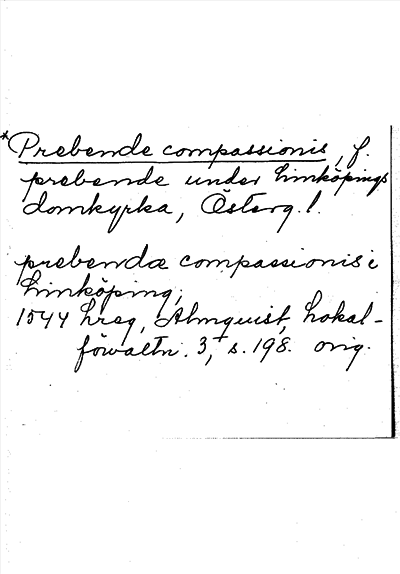 *Prebende compassionis, f.
prebende under Linköpings
domkyrka, Österg. l.
prebendæ compassionis i
Linköping,
1544 hreg, Almquist, Lokal-
förvaltn. 3, s. 198. orig.